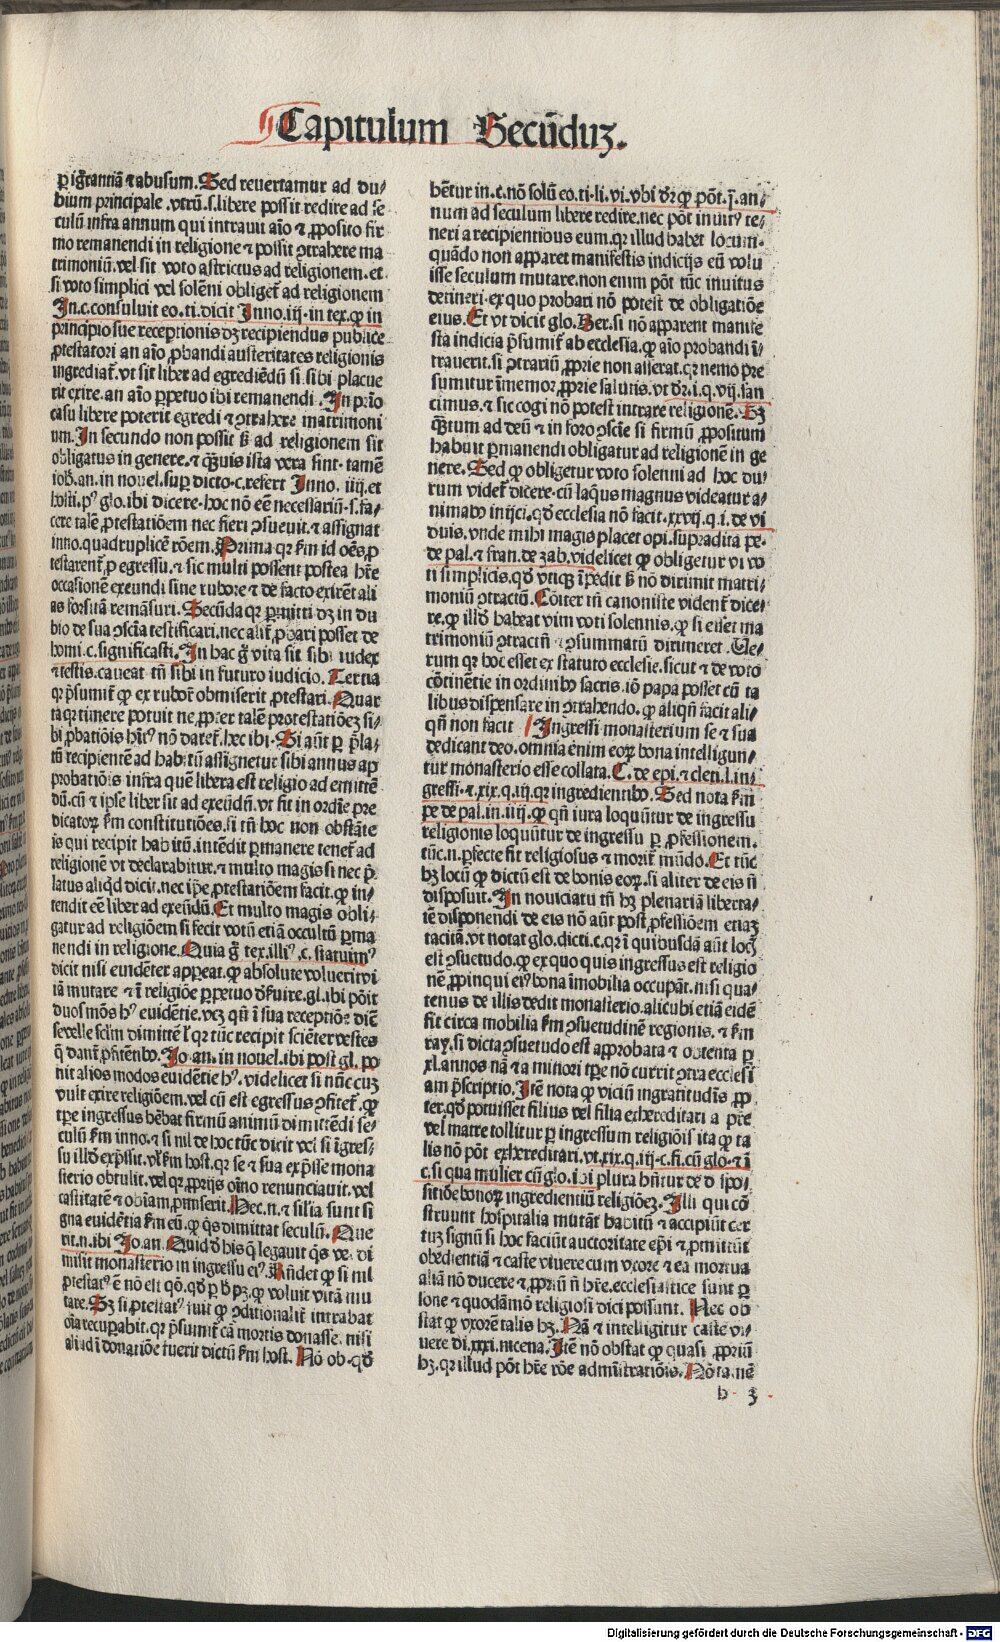 Capitulum Secūduz.
p igr̄antiā ⁊ abusum. Sed reuertamur ad du/
bium principale .vtrū.s.libere possit redire ad se
culū infra annum qui intrauit aīo ⁊ ꝓposito fir
mo remanendi in religione ⁊ possit ꝯtrahere ma
trimoniū. vel sit voto astrictus ad religionem. et
si voto simplici vel solēni obliget̄ ad religionem
In.c.consuluit eo.ti.dicit Inno.iij.in tex.ꝙ in
principio sue receptionis dꝫ recipiendus publice
ꝓtestari an aīo ꝓbandi austeritates religionis
ingrediat̄. vt sit liber ad egrediēdū si sibi placue
rit exire. an aīo ꝑpetuo ibi remanendi. In prīo
casu libere poterit egredi ⁊ ꝯtrahere matrimoni
um. In secundo non possit ꝫ ad religionem sit
obligatus in genere. ⁊ qͣuis ista vera sint. tamē
ioh.an. in nouel. suꝑ dicto.c.refert Inno. iiij. et
hosti. pꝰ glo. ibi dicere. hoc nō eē necessariū.s.fa-
cere talē ꝓtestatiōem nec fieri ꝯsueuit. ⁊ assignat
inno. quadruplicē rōem. Prima qr ẜm id oēs ꝓ
testarent̄ ꝓ egressu. ⁊ sic multi possent postea hr̄e
occasionē exeundi sine rubore ⁊ de facto exirēt ali
as forsitā remāsuri. Secūda qr ꝑmitti dꝫ in du
bio de sua ꝯsciā testificari. nec alit̄ ꝓbari posset de
homi.c.significasti. In hac g̊ vita sit sibi iudex
⁊ testis. caueat tn̄ sibi in futuro iudicio. Tertia
qr p̄sumit̄ ꝙ ex rubor̄ obmiserit ꝓtestari. Quar
ta qr timere potuit ne ꝓpter talē protestatiōeꝫ si/
bi ꝓbatiōis hītꝰ nō daret̄. hec ibi. Si aūt ꝑ p̄la/
tū recipientē ad habitū assignetur sibi annus ap
probatiōis infra quē libera est religio ad emittē
dū. cū ⁊ ipse liber sit ad exeūdū. vt fit in ordīe pre
dicatoꝝ ẜm constitutiōes. si tn̄ hoc non obstāte
is qui recipit habitū. intēdit ꝑmanere tenet̄ ad
religionē vt declarabitur. ⁊ multo magis si nec p̄
latus aliqd dicit. nec ip̄e ꝓtestatiōem facit. ꝙ in/
tendit eē liber ad exeūdū. Et multo magis obli/
gatur ad religiōem si fecit votū etiā occultū ꝑma
nendi in religione. Quia g̊ tex. illiꝰ .c. statuimꝰ
dicit nisi euidēter appeat. ꝙ absolute voluerit vi
tā mutare ⁊ ī religiōe ꝑpetuo d̄suire. gl. ibi pōit
duos mōs hꝰ euidētie. vcꝫ qn̄ ī sua receptiōe dic̄
se velle sclm̄ dimittē l̄ qr tūc recipit sciēter vestes
q̄ dant̄ ꝓfitētibꝫ. Jo.an. in nouel. ibi post gl. po
nit alios modos euidētie hꝰ. videlicet si nūc cuꝫ
vult exire religiōem. vel cū est egressus ꝯfitet̄. ꝙ
tꝑe ingressus hēbat firmū animū dimittēdi se/
culū ẜm inno. ⁊ si nil de hoc tūc dicit vel si īgres/
su illd̄ exp̄ssit. vl̄ ẜm host. qr se ⁊ sua exp̄sse mona
sterio obtulit. vel qr ꝓprijs oīno renunciauit. vel
castitatē ⁊ obīam ꝓmiserit. Nec.n. ⁊ silia sunt si
gna euidētia ẜm eū. ꝙ qͥs dimittat seculū. Que
rit.n.ibi Jo.an. Quid d̄ his q̄ legauit qͥs vel di
misit monasterio in ingressu eiꝰ. Rn̄det ꝙ si nil
ꝓtestatꝰ ē nō est qō. qd̄ ꝑ hꝫ. ꝙ voluit vitā mu
tare. Sꝫ si ꝓtestatꝰ fuit ꝙ ꝯditionalit̄ intrabat
oīa recuꝑabit. qr p̄sumit̄ cā mortis donasse. nisi
aliud ī donatiōe fuerit dictū ẜm host. Nō ob. qd̄
hētur in.c. nō solū eo.ti.li.vi.vbi dr̄ ꝙ pōt.j.an/
num ad seculum libere redire. nec pōt inuitꝰ te/
neri a recipientibus eum. qr illud habet locum.
quādo non apparet manifestis indicijs eū volu
isse seculum mutare. non enim pōt tūc inuitus
detineri. ex quo probari nō potest de obligatiōe
eius. Et vt dicit glo. Ber. si nō apparent manife
sta indicia p̄sumit̄ ab ecclesia. ꝙ aīo probandi ī/
trauerit. si ꝯtrariū ꝓprie non asserat. qr nemo pre
sumitur īmemor ꝓprie salutis. vt dr̄.i.q.vij. san
cimus. ⁊ sic cogi nō potest intrare religionē. Sꝫ
qͣtum ad deū ⁊ in foro ꝯscīe si firmū ꝓpositum
habuit ꝑmanendi obligatur ad religionē in ge
nere. Sed ꝙ obligetur voto solenni ad hoc du/
rum videt̄ dicere. cū laqus magnus videatur a/
nimabꝫ inijci. qd̄ ecclesia nō facit. xxvij.q.i. de vi
duis. vnde mihi magis placet opi. supradita pe.
de pal. ⁊ fran. de zab. videlicet ꝙ obligetur vi vo
ti simplicis. qd̄ vtiqꝫ īpedit ꝫ nō dirimit matri/
moniū ꝯtractū. Cōiter tn̄ canoniste vident̄ dice/
re. ꝙ illd̄ habeat vim voti solennis. ꝙ si esset ma
trimoniū ꝯtractū ⁊ ꝯsummatū dirimeret. Ve/
rum qr hoc esset ex statuto ecclesie. sicut ⁊ de voto
cōtinētie in ordinibꝫ sacris. iō papa posset cū ta
libus dispensare in ꝯtrahendo. ꝙ aliqn̄ facit ali/
qn̄ non facit Ingressi monasterium se ⁊ sua
dedicant deo. omnia enim eoꝝ bona intelligun/
tur monasterio esse collata. C. de epi. ⁊ cleri. l. in/
gressi. ⁊.xix.q.iij.qr ingredientibꝫ. Sed nota ẜm
pe de pal. in.iiij. ꝙ qn̄ iura loquūtur de ingressu
religionis loquūtur de ingressu ꝑ ꝓfessionem.
tūc.n. ꝑfecte fit religiosus ⁊ morit̄ mūdo. Et tūc
hꝫ locū ꝙ dictū est de bonis eoꝝ. si aliter de eis n̄
disposuit. In nouiciatu tn̄ hꝫ plenariā liberta/
tē disponendi de eis nō aūt post ꝓfessiōem etiaꝫ
tacitā. vt notat glo. dicti.c.qr ī quibusdā aūt locꝭ
est ꝯsuetudo. ꝙ ex quo quis ingressus est religio
nē ꝓpinqui eiꝰ bona īmobilia occupāt. nisi qua/
tenus de illis dedit monasterio. alicubi etiā eidē
fit circa mobilia ẜm ꝯsuetudinē regionis. ⁊ ẜm
ray. si dicta ꝯsuetudo est approbata ⁊ obtenta ꝑ
xl. annos nā ⁊ a minori tꝑe nō currit ꝯtra ecclesi
am p̄scriptio. Itē nota ꝙ viciū ingratitudīs ꝓp
ter. qd̄ potuisset filius vel filia exhereditari a p̄re
vel matre tollitur ꝑ ingressum religiōis ita ꝙ ta
lis nō pōt exhereditari. vt.xix.q.iij.c.fi. cū glo. ⁊ ī
c. si qua mulier cū glo. ibi plura hn̄tur de dispo/
sitiōe bonoꝝ ingredientiū religiōeꝫ. Illi qui cō
struunt hospitalia mutāt habitū ⁊ accipiūt cer
tuꝫ signū si hoc faciūt auctoritate ep̄i ⁊ ꝓmittūt
obedientiā ⁊ caste viuere cum vxore ⁊ ea mortua
aliā nō ducere ⁊ ꝓpriū n̄ hr̄e. ecclesiastice sunt ꝑ
sone ⁊ quodāmō religiosi dici possunt. Nec ob
stat ꝙ vxorē talis hꝫ. Nā ⁊ intelligitur caste vi/
uere di.xxxi.nicena. Itē nō obstat ꝙ quasi ꝓpriū
hꝫ. qr illud pōt hr̄e rōe admīstratiōis. Nota. nē
b 3
Digitalisierung gefördert durch die Deutsche Forschungsgemeinschaft - DFG